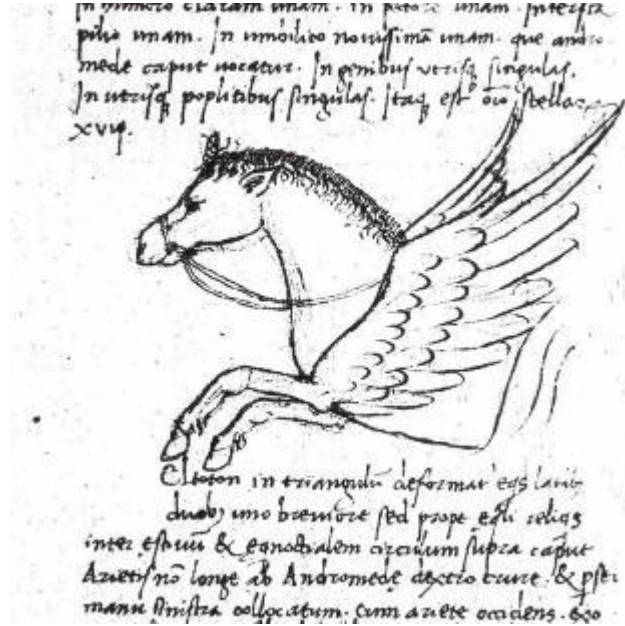 in humero claram unam. In pectore unam. Intersca
pilio unam. In umbilico novissimā unam. que andro
mede caput vocatur. In genibus utrisq singulas.
In utrisq poplitibus singulas. Itaq est oīo stellar
xviij.
Eltoton in triangulū deformat' eqs laterib
duobʒ uno breviore sed prope eqli reliqs
inter estivū & eqnoctialem circulum supra caput
Arietis nō longe ab Andromede dextro crure. & psei
manu sinistra collocatum. Cum ariete occidens. exo